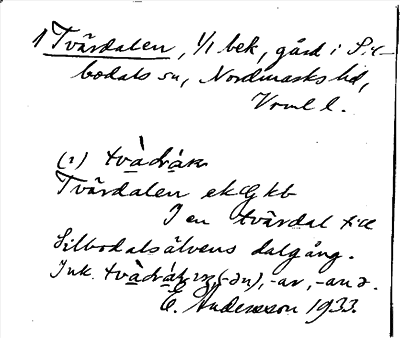 1) Tvärdalen, 1/1 bek, gård i Sil-
bodals sn, Nordmarks hd,
Vrml l.
(i) tvàdràn
Tvärdalen ek Gkb
I en tvärdal till
Silbodalsälvens dalgång.
Ink. (-ən), -ar, -anə.
E. Andersson 1933.